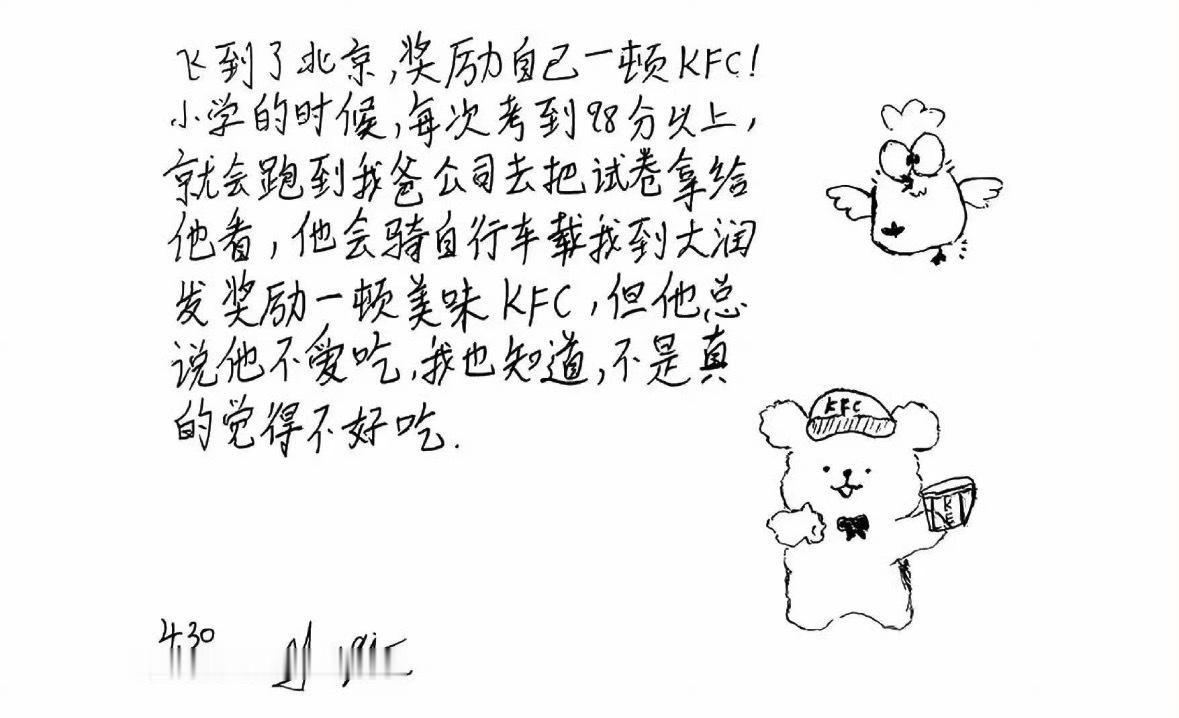 飞到了北京,奖励自己一顿KFC!
小学的时候,每次考到98分以上,
就会跑到我爸公司去把试卷拿给
他看,他会骑自行车载我到大润
发奖励一顿美味KFC,但他总
说他不爱吃,我也知道,不是真
的觉得不好吃.
KFC
430